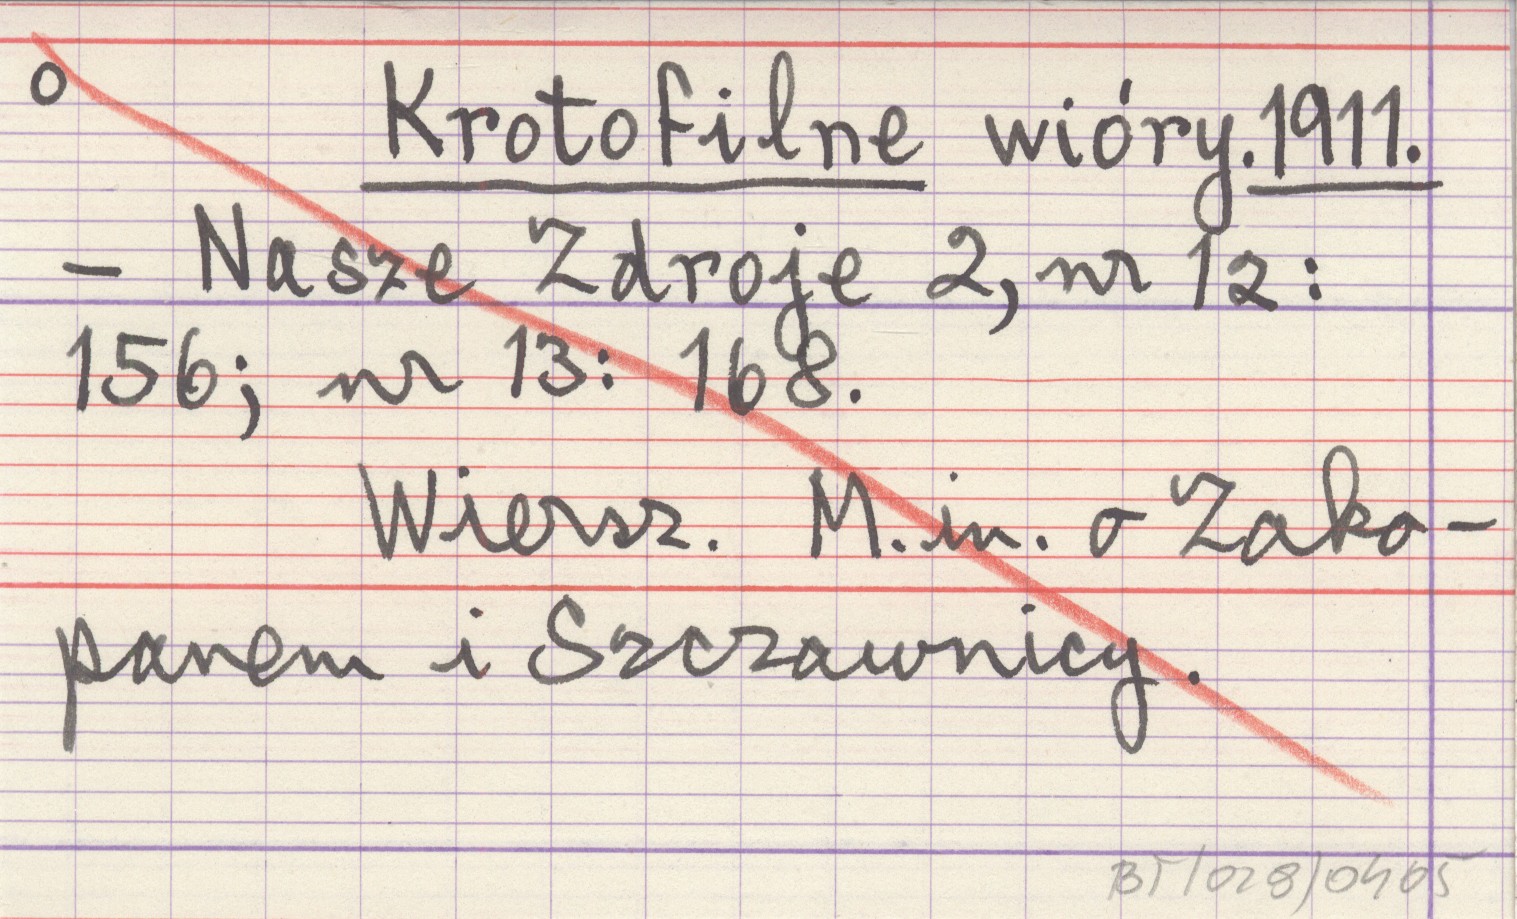 o
Krotofilne wióry. 1911.
– Nasze Zdroje 2, nr 12:
156; nr 13: 168.
Wiersz. M.in. o Zako-
panem i Szczawnicy.
BT/028/0405